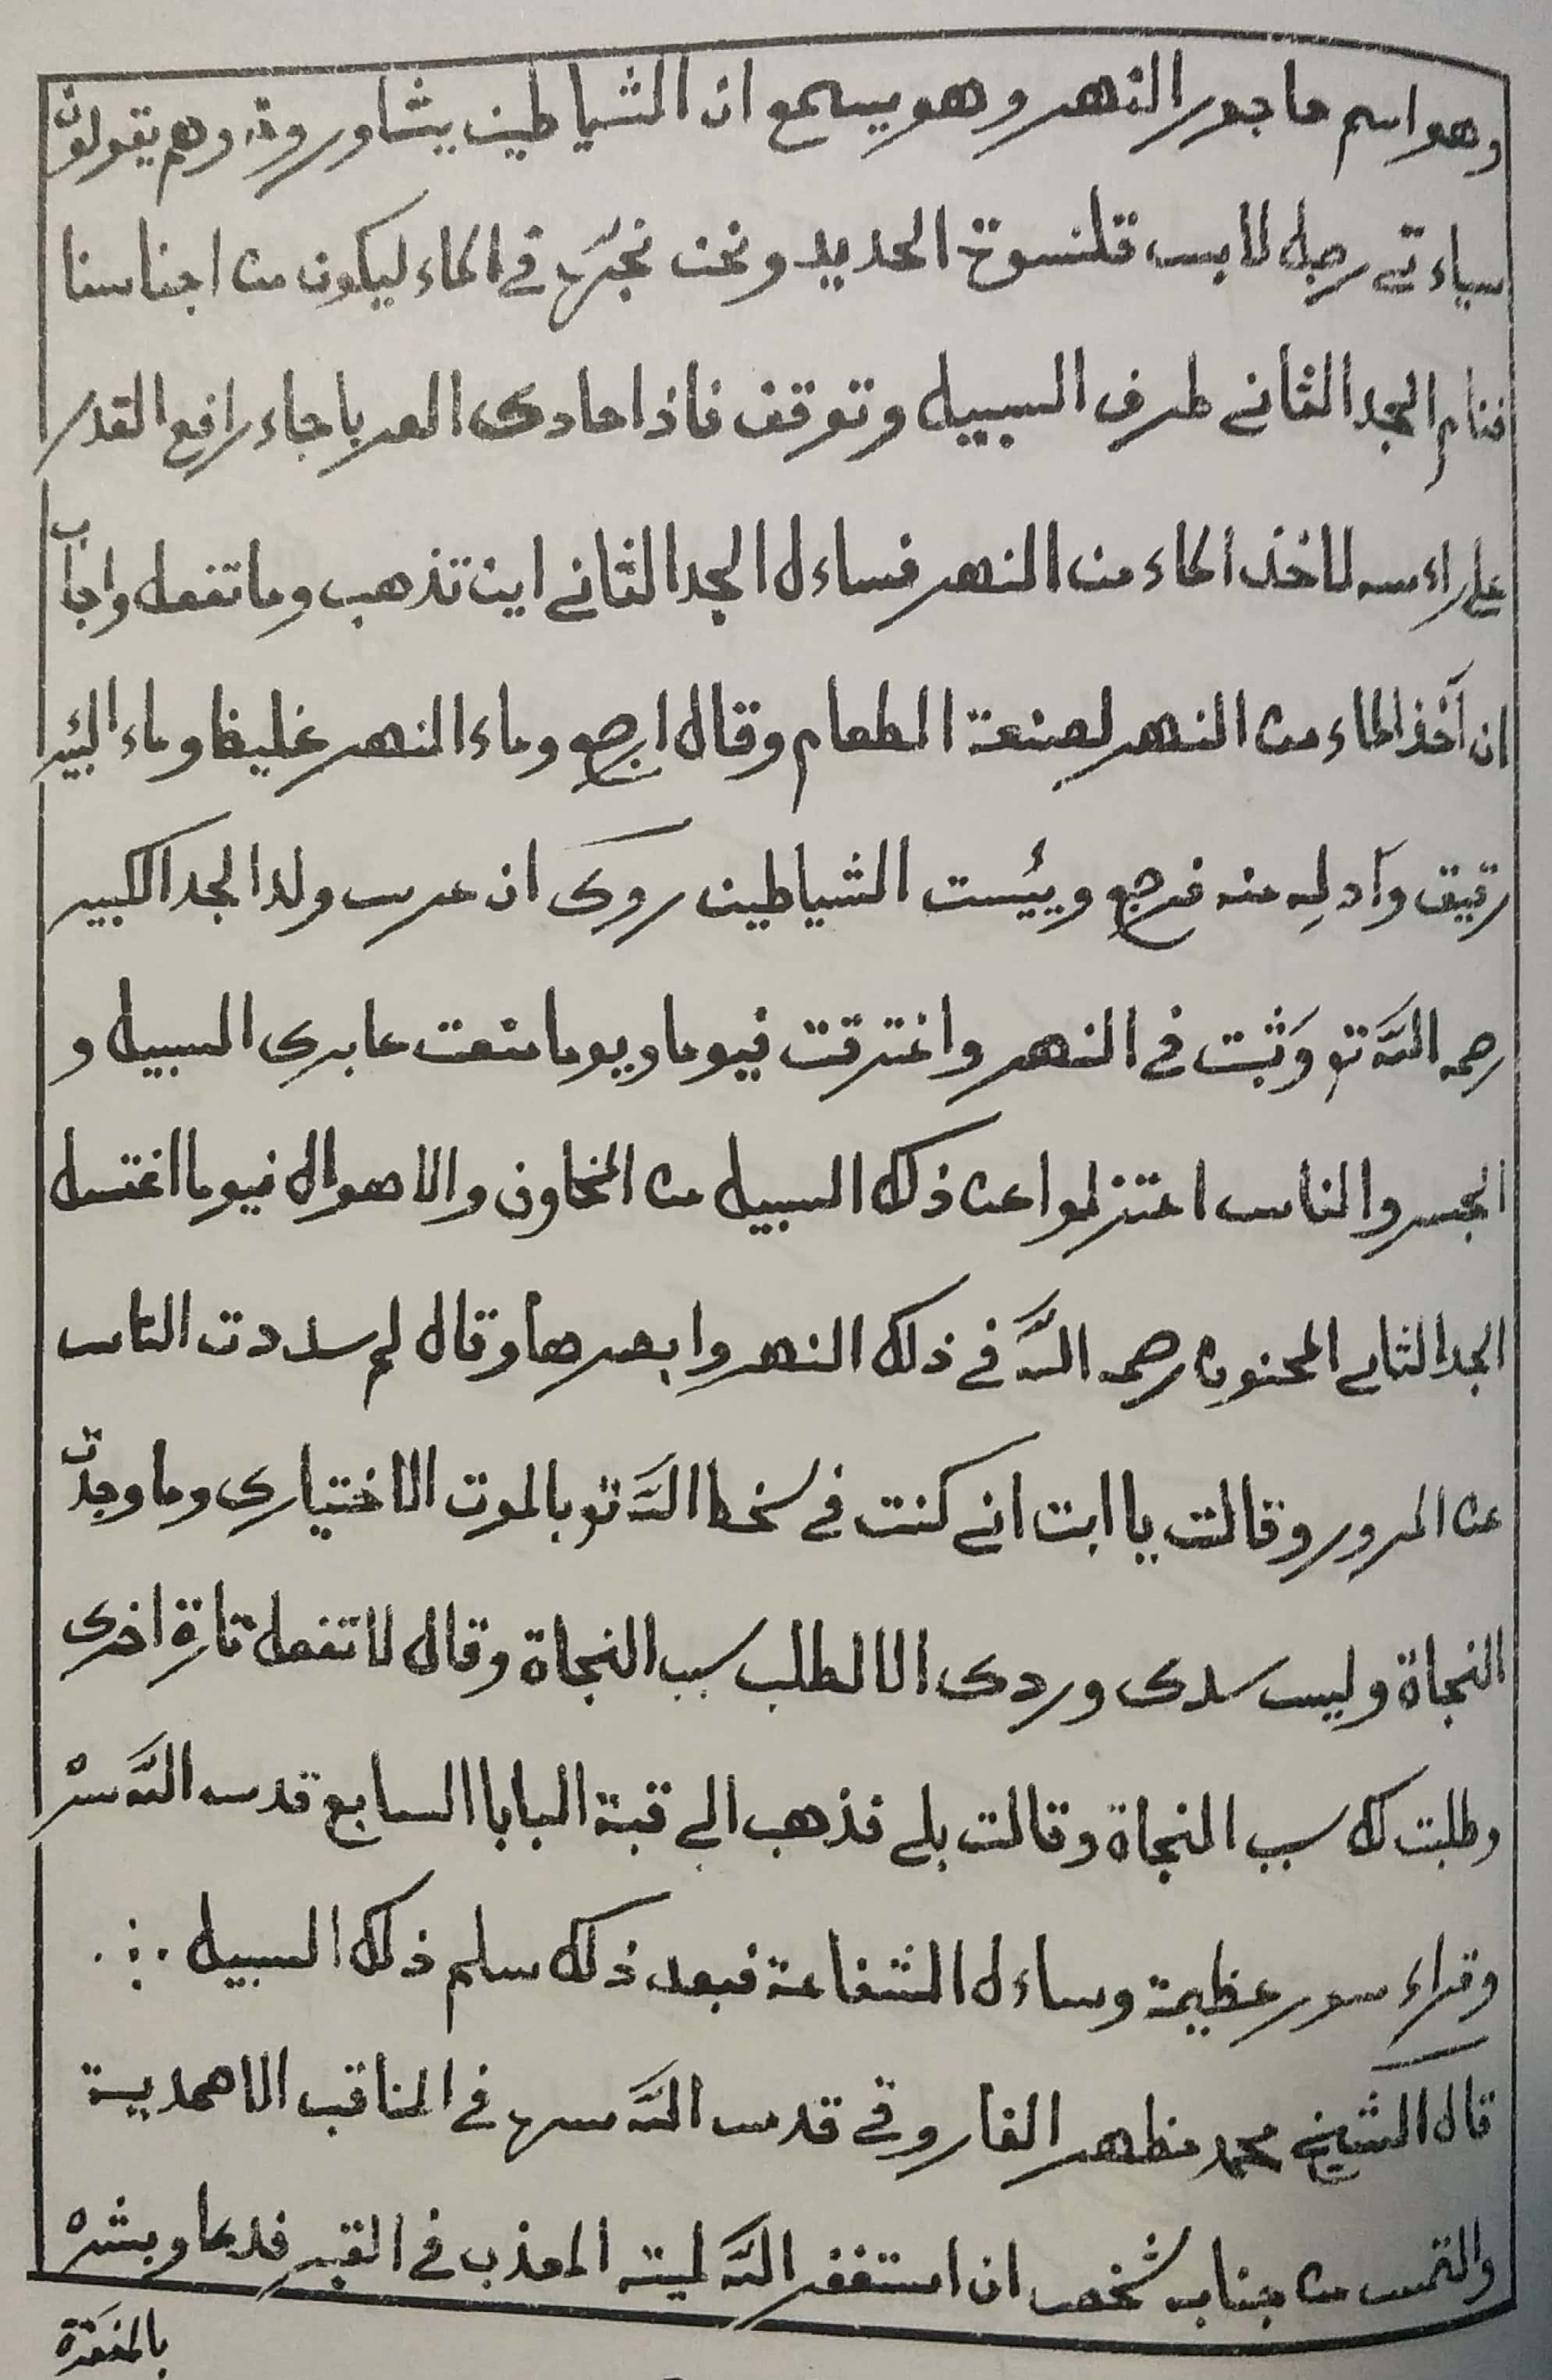 وهو اسم ماجور النهر وهو يسمع ان الشياطين يشاورون وهم يقولون
سياءتي رجل لابس قلنسوة الحديد ونحن نجرّه في الماء ليكون من اجناسنا
فنام الجد الثاني طرف السبيل وتوقف فاذا حادى العربا جاء رافع القدر
على راءسه لاخذ الماء من النهر فساءل الجد الثاني اين تذهب وما تفعل واجاب
ان آخذ الماء من النهر لصنعة الطعام وقال ارجع وماء النهر غليظ وماء البئر
رقيق وآد له منه فرجع ويئست الشياطين روى ان عرس ولد الجد الكبير
رحمه اللّه تع وَثبت في النهر واغترقت فيوما ويوما منعت عابرى السبيل و
الجسر والناس اعتزلوا عن ذلك السبيل من المخاوف والاهوال فيوما اغتسل
الجد الثاني المجنون رحمه اللّه في ذلك النهر وابصرها وقال لم سددت الناس
عن المرور وقالت يا ابت اني كنت في سخط اللّه تع بالموت الاختيارى وما وجدت
النجاة وليس سدى وردى الا لطلب سبب النجاة وقال لا تفعل تارة اخرى
وطلبت لك سبب النجاة وقالت بلى فذهب الى قبة البابا السابع قدس اللّه سرّه
وقراء سور عظيمة وساءل الشفاعة فبعد ذلك سلم ذلك السبيل
قال الشيخ محمد مظهر الفاروقي قدس اللّه سره في المناقب الاحمدية
والتمس من جنابه شخص ان استغفر اللّه لميته المعذب في القبر فدعا وبشره
بالمغفرة